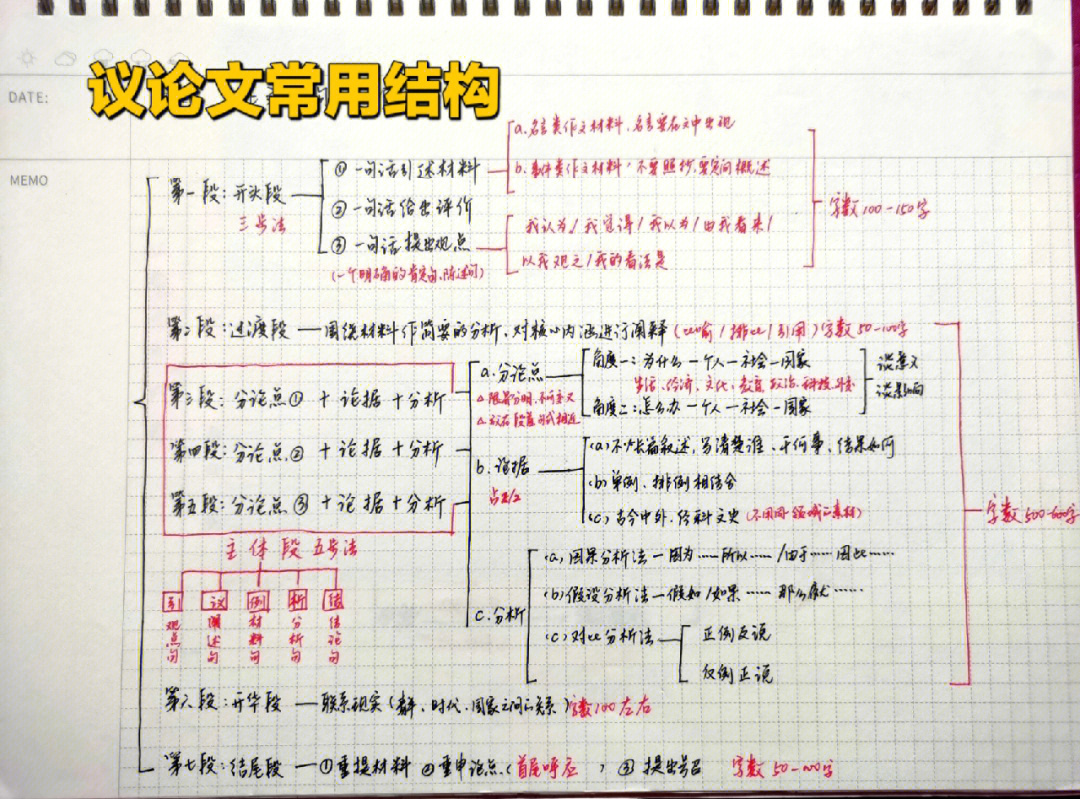 议论文常用结构
DATE:
MEMO
第一段：开头段
三步法
① 一句话引述材料
a.名言类作文材料，名言要在文中出现
b.事件类作文材料，不要照抄，要空间概述
② 一句话给出评价
③ 一句话提出观点
(一个明确的肯定句、陈述句)
我认为/我觉得/我以为/由我看来/
以我观之/我的看法是
字数100-150字
第二段：过渡段 — 围绕材料作简要的分析，对核心内涵进行阐释（比喻/排比/引用）字数50-100字
第三段：分论点① + 论据 + 分析
第四段：分论点② + 论据 + 分析
第五段：分论点③ + 论据 + 分析
a.分论点
△限号分明，不可交叉
△放在段首句式相近
角度一：为什么 — 个人 — 社会 — 国家
生活、经济、文化、教育、政治、科技
角度二：怎么办 — 个人 — 社会 — 国家
谈意义
谈影响
b.论据
占1/2
(a)不长篇叙述，写清楚谁、干何事、结果如何
(b)单例、排例相结合
(c)古今中外、经科文史（不同领域的素材）
主体段五步法
引 观点句
议 阐述句
例 材料句
析 分析句
结 结论句
c.分析
(a)因果分析法 — 因为……所以……/由于……因此……
(b)假设分析法 — 假如/如果……那么就……
(c)对比分析法
正例反说
反例正说
字数500-600字
第六段：升华段 — 联系现实（群、时代、国家之间的关系）字数100左右
第七段：结尾段 — ①重提材料 ②重申论点（首尾呼应） ③提出号召 字数50-100字